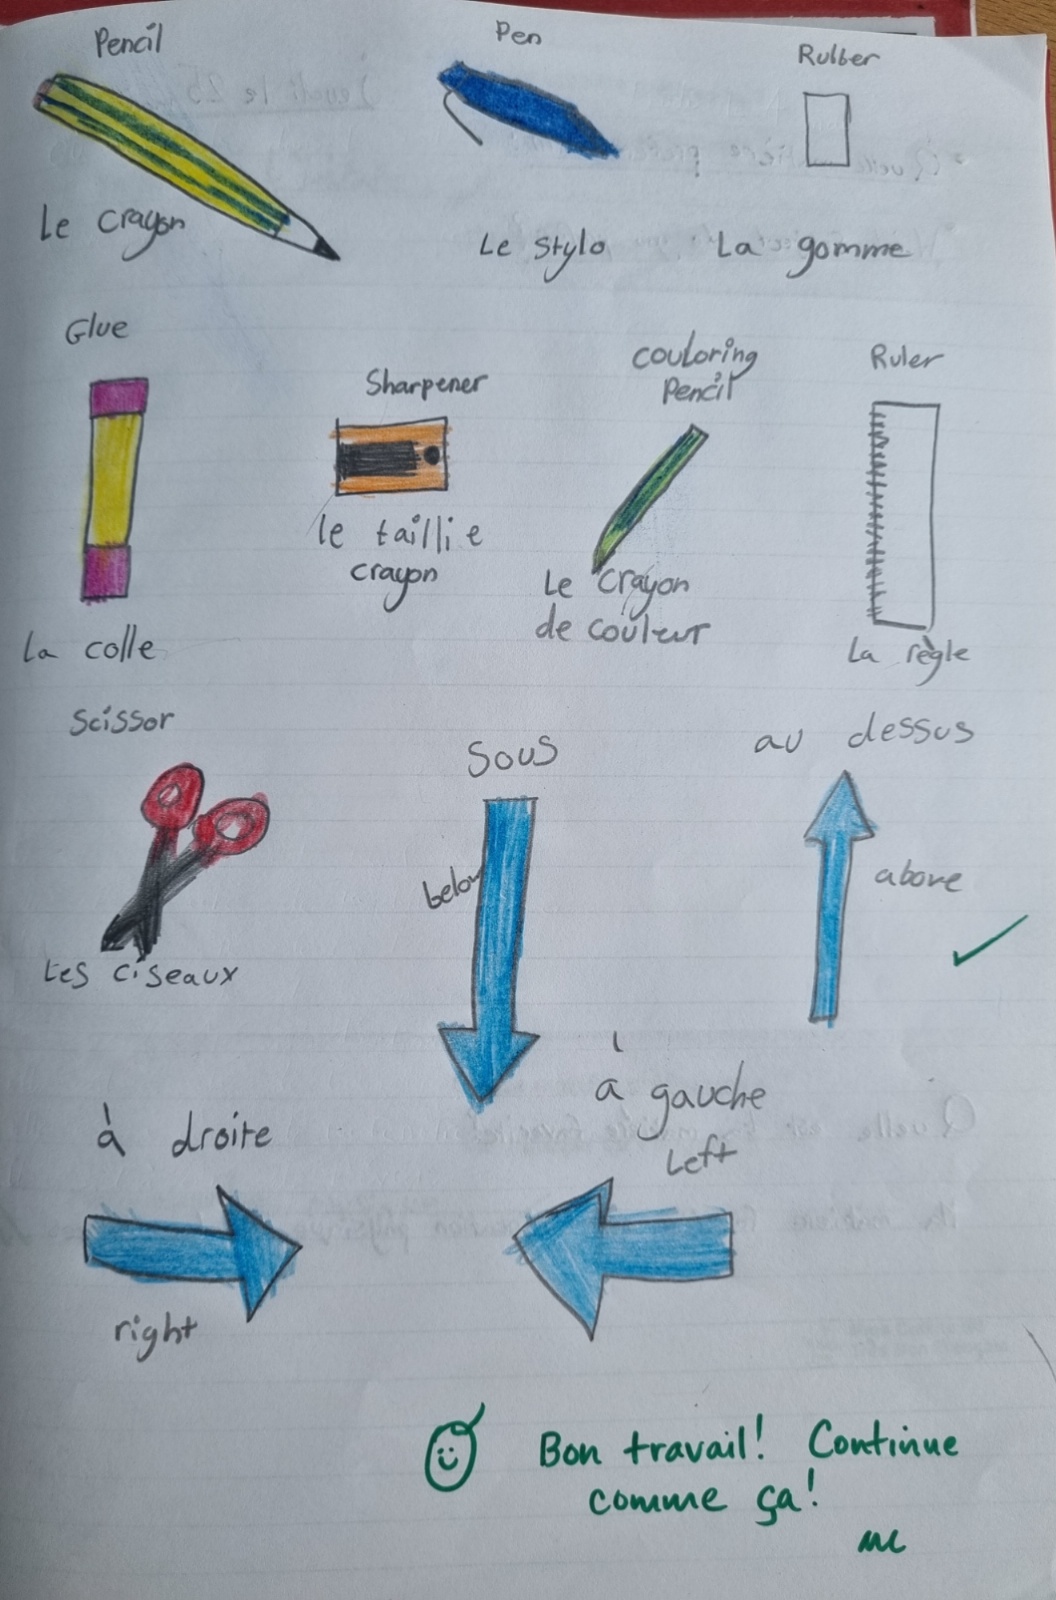 Pencil
Pen
Rulber
Le crayon
Le stylo
La gomme
Glue
Sharpener
couloring
Pencil
Ruler
le taillie
crayon
Le crayon
de couleur
La colle
La règle
Scissor
Sous
au dessus
below
above
Les ciseaux
à gauche
à droite
Left
right
Bon travail! Continue
comme ça!